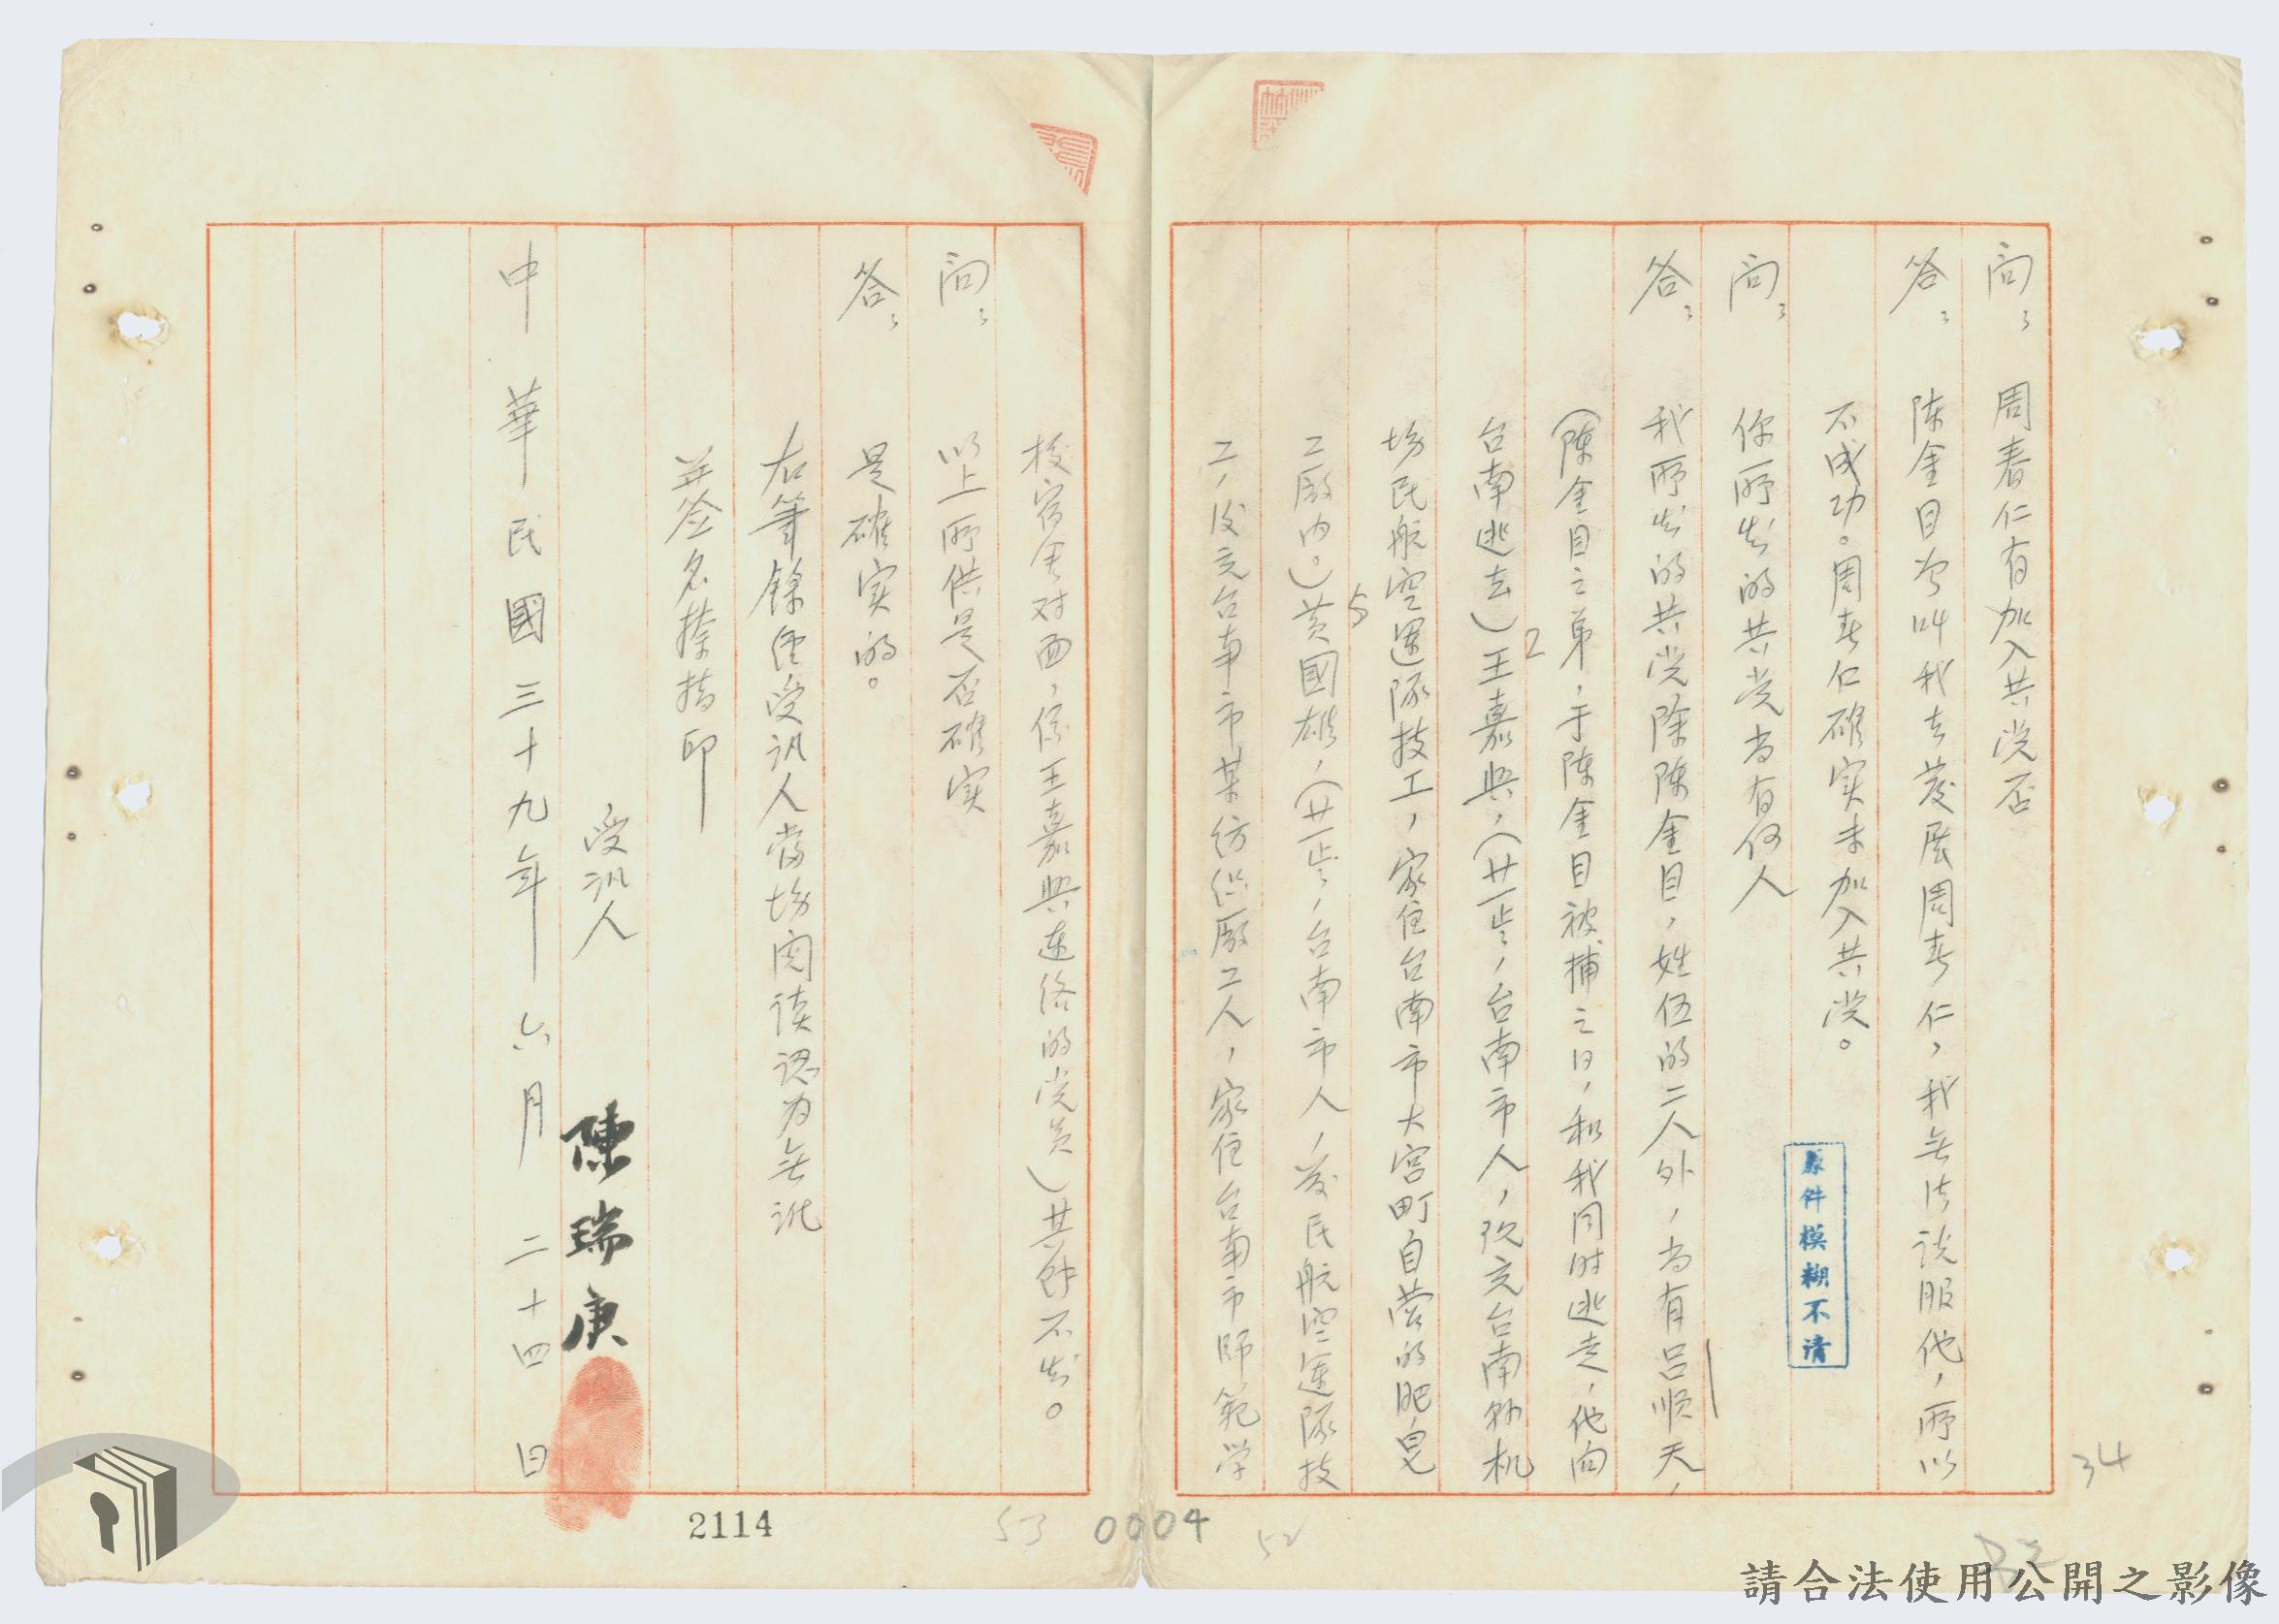 問：周春仁有加入共党否
答：陈金目曾叫我去发展周春仁，我无法说服他，所以
不成功。周春仁確实未加入共党。
問：你所知的共党尚有何人
答：我所知的共党除陈金目，姓伍的二人外，尚有吕顺天，
（陈金目之弟，于陈金目被捕之日，和我同时逃走，他向
台南逃去）王嘉興，（廿一岁，台南市人，现充台南机
2
场民航空運隊技工，家住台南市大宮町自营的肥皂
工廠内。）黄國雄，（廿一岁，台南市人，民航空運隊技
5
工，后充台南市某纺织廠工人，家住台南市師範学
校宿舍对面，係王嘉興連络的党员）其餘不知。
問：以上所供是否確实
答：是確实的。
右筆錄經受讯人當场阅读認为無讹
並签名捺指印
受讯人 陳瑞庚
中華民國三十九年六月二十四日
原件模糊不清
34
2114
53
0004
52
請合法使用公開之影像